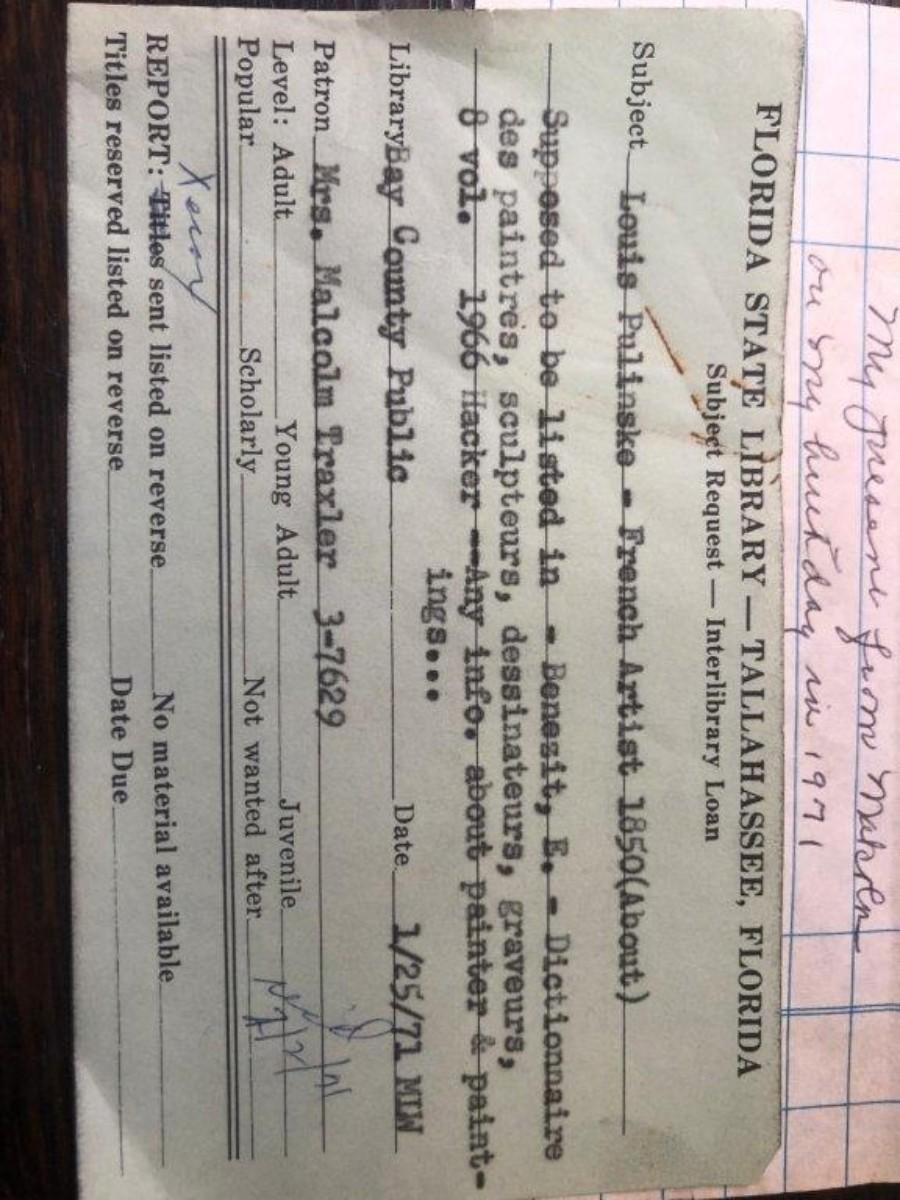 My present from
on my birthday in 1971
FLORIDA STATE LIBRARY — TALLAHASSEE, FLORIDA
Subject Request — Interlibrary Loan
Subject Louis Pulinske - French Artist 1850(About)
Supposed to be listed in - Benezit, E. - Dictionnaire
des paintres, sculpteurs, dessinateurs, graveurs,
8 vol. 1966 Hacker --Any info. about painter & paint-
ings...
Library Bay County Public Date 1/25/71 MLW
Patron Mrs. Malcolm Traxler 3-7629
Level: Adult Young Adult Juvenile
Popular Scholarly Not wanted after
Xerox
REPORT: Titles sent listed on reverse No material available
Titles reserved listed on reverse Date Due